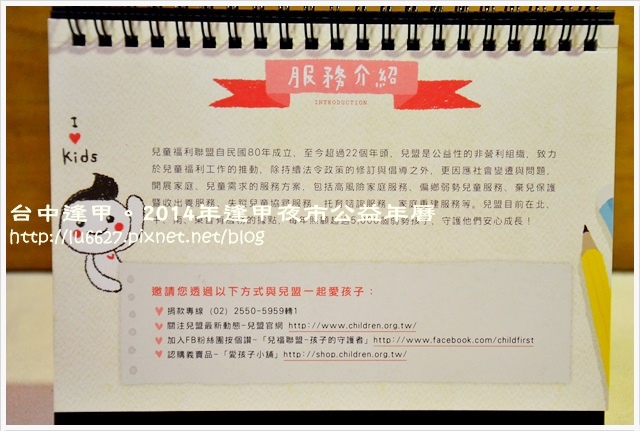 服務介紹
INTRODUCTION
I
Kids
兒童福利聯盟自民國80年成立，至今超過22個年頭，兒盟是公益性的非營利組織，致力
於兒童福利工作的推動，除持續法令政策的修訂與倡導之外，更因應社會變遷與問題，
開展家庭、兒童需求的服務方案，包括高風險家庭服務、偏鄉弱勢兒童服務、棄兒保護
暨收出養服務、失蹤兒童協尋服務、托育諮詢服務、家庭重建服務等。兒盟目前在北、
每年照顧超過5,000個弱勢孩子，守護他們安心成長！
台中逢甲。2014年逢甲夜市公益年曆
http://lu6627.pixnet.net/blog
邀請您透過以下方式與兒盟一起愛孩子：
捐款專線 (02) 2550-5959轉1
關注兒盟最新動態-兒盟官網 http://www.children.org.tw/
加入FB粉絲團按個讚-「兒福聯盟-孩子的守護者」http://www.facebook.com/childfirst
認購義賣品-「愛孩子小舖」http://shop.children.org.tw/